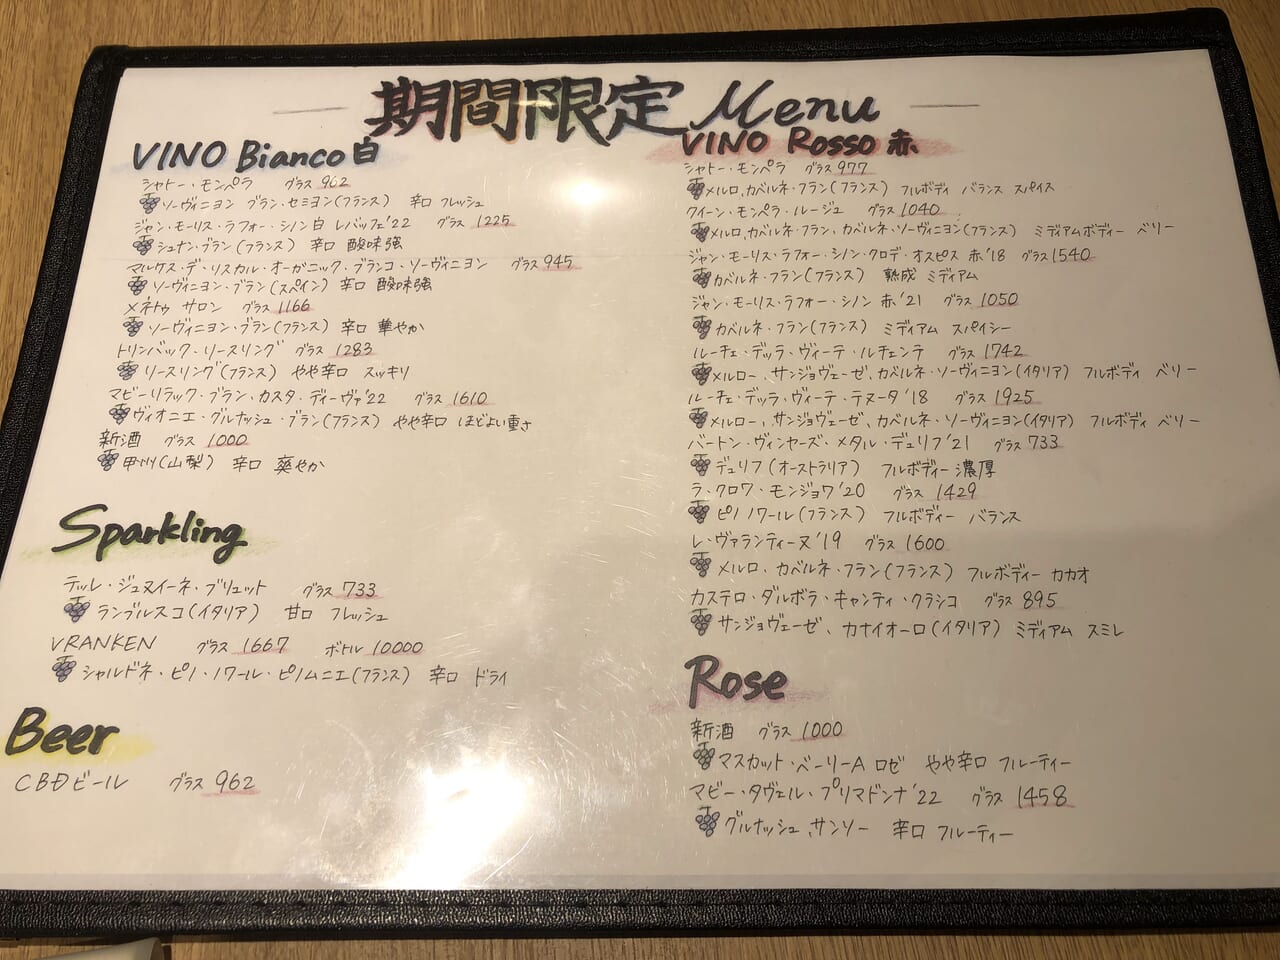 期間限定 Menu
VINO Bianco 白
シャトー・モンペラ グラス 962
ソーヴィニヨン ブラン・セミヨン(フランス) 辛口 フレッシュ
ジャン・モーリス・ラフォー・シノン白 レバッフェ'22 グラス 1225
シュナン・ブラン(フランス) 辛口 酸味強
マルケス・デ・リスカル・オーガニック・ブランコ・ソーヴィニヨン グラス 945
ソーヴィニヨン・ブラン(スペイン) 辛口 酸味強
メネトゥ サロン グラス 1166
ソーヴィニヨン・ブラン(フランス) 辛口 華やか
トリンバック・リースリング グラス 1283
リースリング(フランス) やや辛口 スッキリ
マビーリラック・ブラン・カスタ・ディーヴァ'22 グラス 1610
ヴィオニエ・グルナッシュ・ブラン(フランス) やや辛口 ほどよい重さ
新酒 グラス 1000
甲州(山梨) 辛口 爽やか
Sparkling
テッレ・ジェヌイーネ・ブリュット グラス 733
ランブルスコ(イタリア) 甘口 フレッシュ
VRANKEN グラス 1667 ボトル 10000
シャルドネ・ピノ・ノワール・ピノムニエ(フランス) 辛口 ドライ
Beer
CBDビール グラス 962
VINO Rosso 赤
シャトー・モンペラ グラス 977
メルロ、カベルネ・フラン(フランス) フルボディ バランス スパイス
クイーン・モンペラ・ルージュ グラス 1040
メルロ、カベルネ・フラン、カベルネ・ソーヴィニヨン(フランス) ミディアムボディー ベリー
ジャン・モーリス・ラフォー・シノン・クロデ・オスピス 赤'18 グラス 1540
カベルネ・フラン(フランス) 熟成 ミディアム
ジャン・モーリス・ラフォー・シノン 赤'21 グラス 1050
カベルネ・フラン(フランス) ミディアム スパイシー
ルーチェ・デッラ・ヴィーテ・ルチェンテ グラス 1742
メルロー、サンジョヴェーゼ、カベルネ・ソーヴィニヨン(イタリア) フルボディ ベリー
ルーチェ・デッラ・ヴィーテ・テヌータ'18 グラス 1925
メルロー、サンジョヴェーゼ、カベルネ・ソーヴィニヨン(イタリア) フルボディ ベリー
バートン・ヴィンヤーズ・メタル・デュリフ'21 グラス 733
デュリフ(オーストラリア) フルボディー 濃厚
ラ・クロワ・モンジョワ'20 グラス 1429
ピノ ノワール(フランス) フルボディー バランス
レ・ヴァランティーヌ'19 グラス 1600
メルロ、カベルネ・フラン(フランス) フルボディー カカオ
カステロ・ダルボラ・キャンティ・クラシコ グラス 895
サンジョヴェーゼ、カナイオーロ(イタリア) ミディアム スミレ
Rose
新酒 グラス 1000
マスカット・ベーリーA ロゼ やや辛口 フルーティー
マビー・タヴェル・プリマドンナ'22 グラス 1458
グルナッシュ、サンソー 辛口 フルーティー